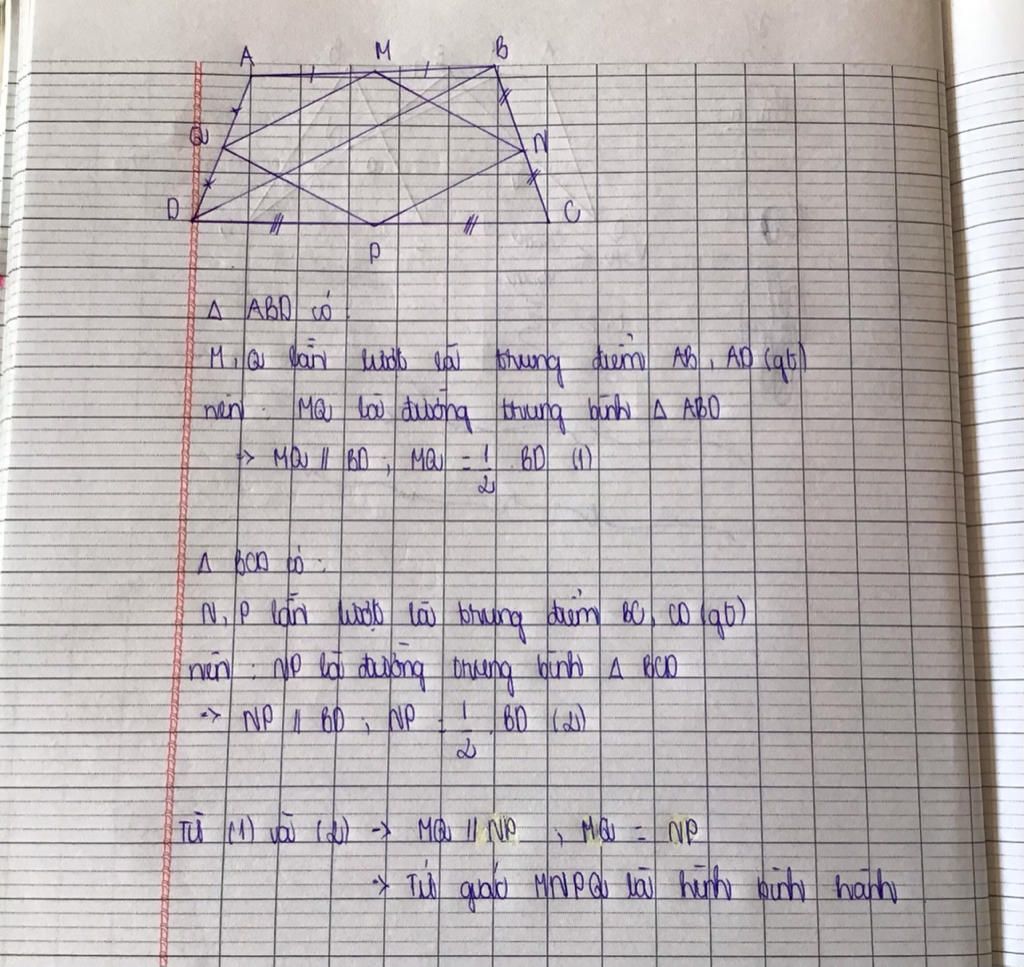 A M B
Q N
D C
P
Δ ABD có :
M, Q lần lượt là trung điểm AB, AD (gt)
nên : MQ là đường trung bình Δ ABD
→ MQ // BD ; MQ = 1/2 BD (1)
Δ BCD có :
N, P lần lượt là trung điểm BC, CD (gt)
nên : NP là đường trung bình Δ BCD
→ NP // BD ; NP = 1/2 BD (2)
Từ (1) và (2) → MQ // NP , MQ = NP
→ Tứ giác MNPQ là hình bình hành